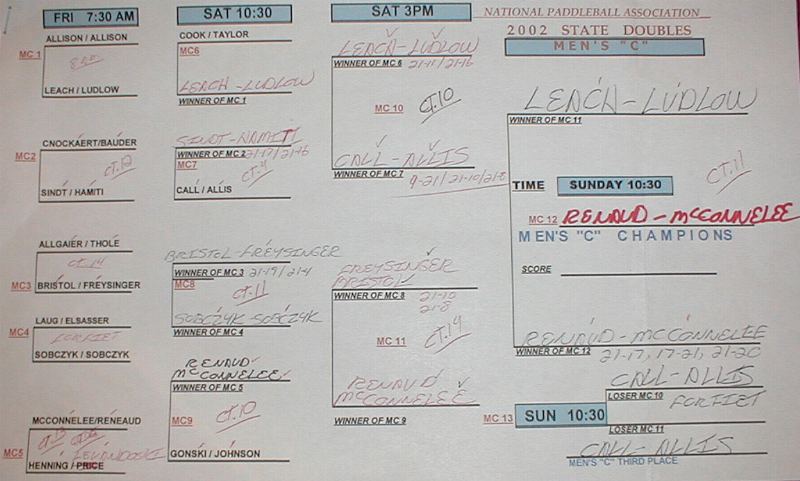 FRI 7:30 AM
SAT 10:30
SAT 3PM
NATIONAL PADDLEBALL ASSOCIATION
2002 STATE DOUBLES
MEN'S "C"
ALLISON / ALLISON
MC 1
LEACH / LUDLOW
CNOCKAERT/BAUDER
MC2
CT.12
SINDT / HAMITI
ALLGAIER / THOLE
CT.14
MC3
BRISTOL / FREYSINGER
LAUG / ELSASSER
MC4
FORFIET
SOBCZYK / SOBCZYK
MCCONNELEE/RENEAUD
MC5
LEVANDOSKI
HENNING / PRICE
COOK / TAYLOR
MC6
LEACH - LUDLOW
WINNER OF MC 1
SINDT - HAMITI
WINNER OF MC 2 21-17/21-16
MC7
CALL / ALLIS
BRISTOL - FREYSINGER
WINNER OF MC 3 21-19/21-4
MC8
CT.11
SOBCZYK SOBCZYK
WINNER OF MC 4
RENAUD
McCONNELEE
WINNER OF MC 5
MC9
CT.10
GONSKI / JOHNSON
LEACH - LUDLOW
WINNER OF MC 6 21-11/21-16
MC 10
CT.10
CALL - ALLIS
WINNER OF MC 7
9-21/21-10/21-8
FREYSINGER
BRISTOL
WINNER OF MC 8 21-10
21-8
MC 11
CT.14
RENAUD
McCONNELEE
WINNER OF MC 9
LEACH - LUDLOW
WINNER OF MC 11
CT.11
TIME SUNDAY 10:30
MC 12 RENAUD - McCONNELEE
MEN'S "C" CHAMPIONS
SCORE
RENAUD - McCONNELEE
WINNER OF MC 12 21-17, 17-21, 21-20
CALL - ALLIS
LOSER MC 10 FORFIET
MC 13 SUN 10:30
LOSER MC 11
CALL - ALLIS
MEN'S "C" THIRD PLACE